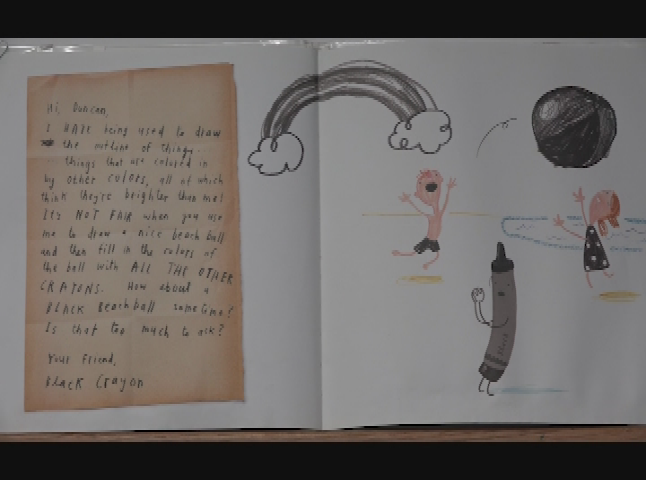 Hi, Duncan,
I HATE being used to draw
the outline of things...
...things that are colored in
by other colors, all of which
think they're brighter than me!
It's NOT FAIR when you use
me to draw a nice beach ball
and then fill in the colors of
the ball with ALL THE OTHER
CRAYONS. How about a
BLACK Beachball sometime?
Is that too much to ask?
Your friend,
Black Crayon